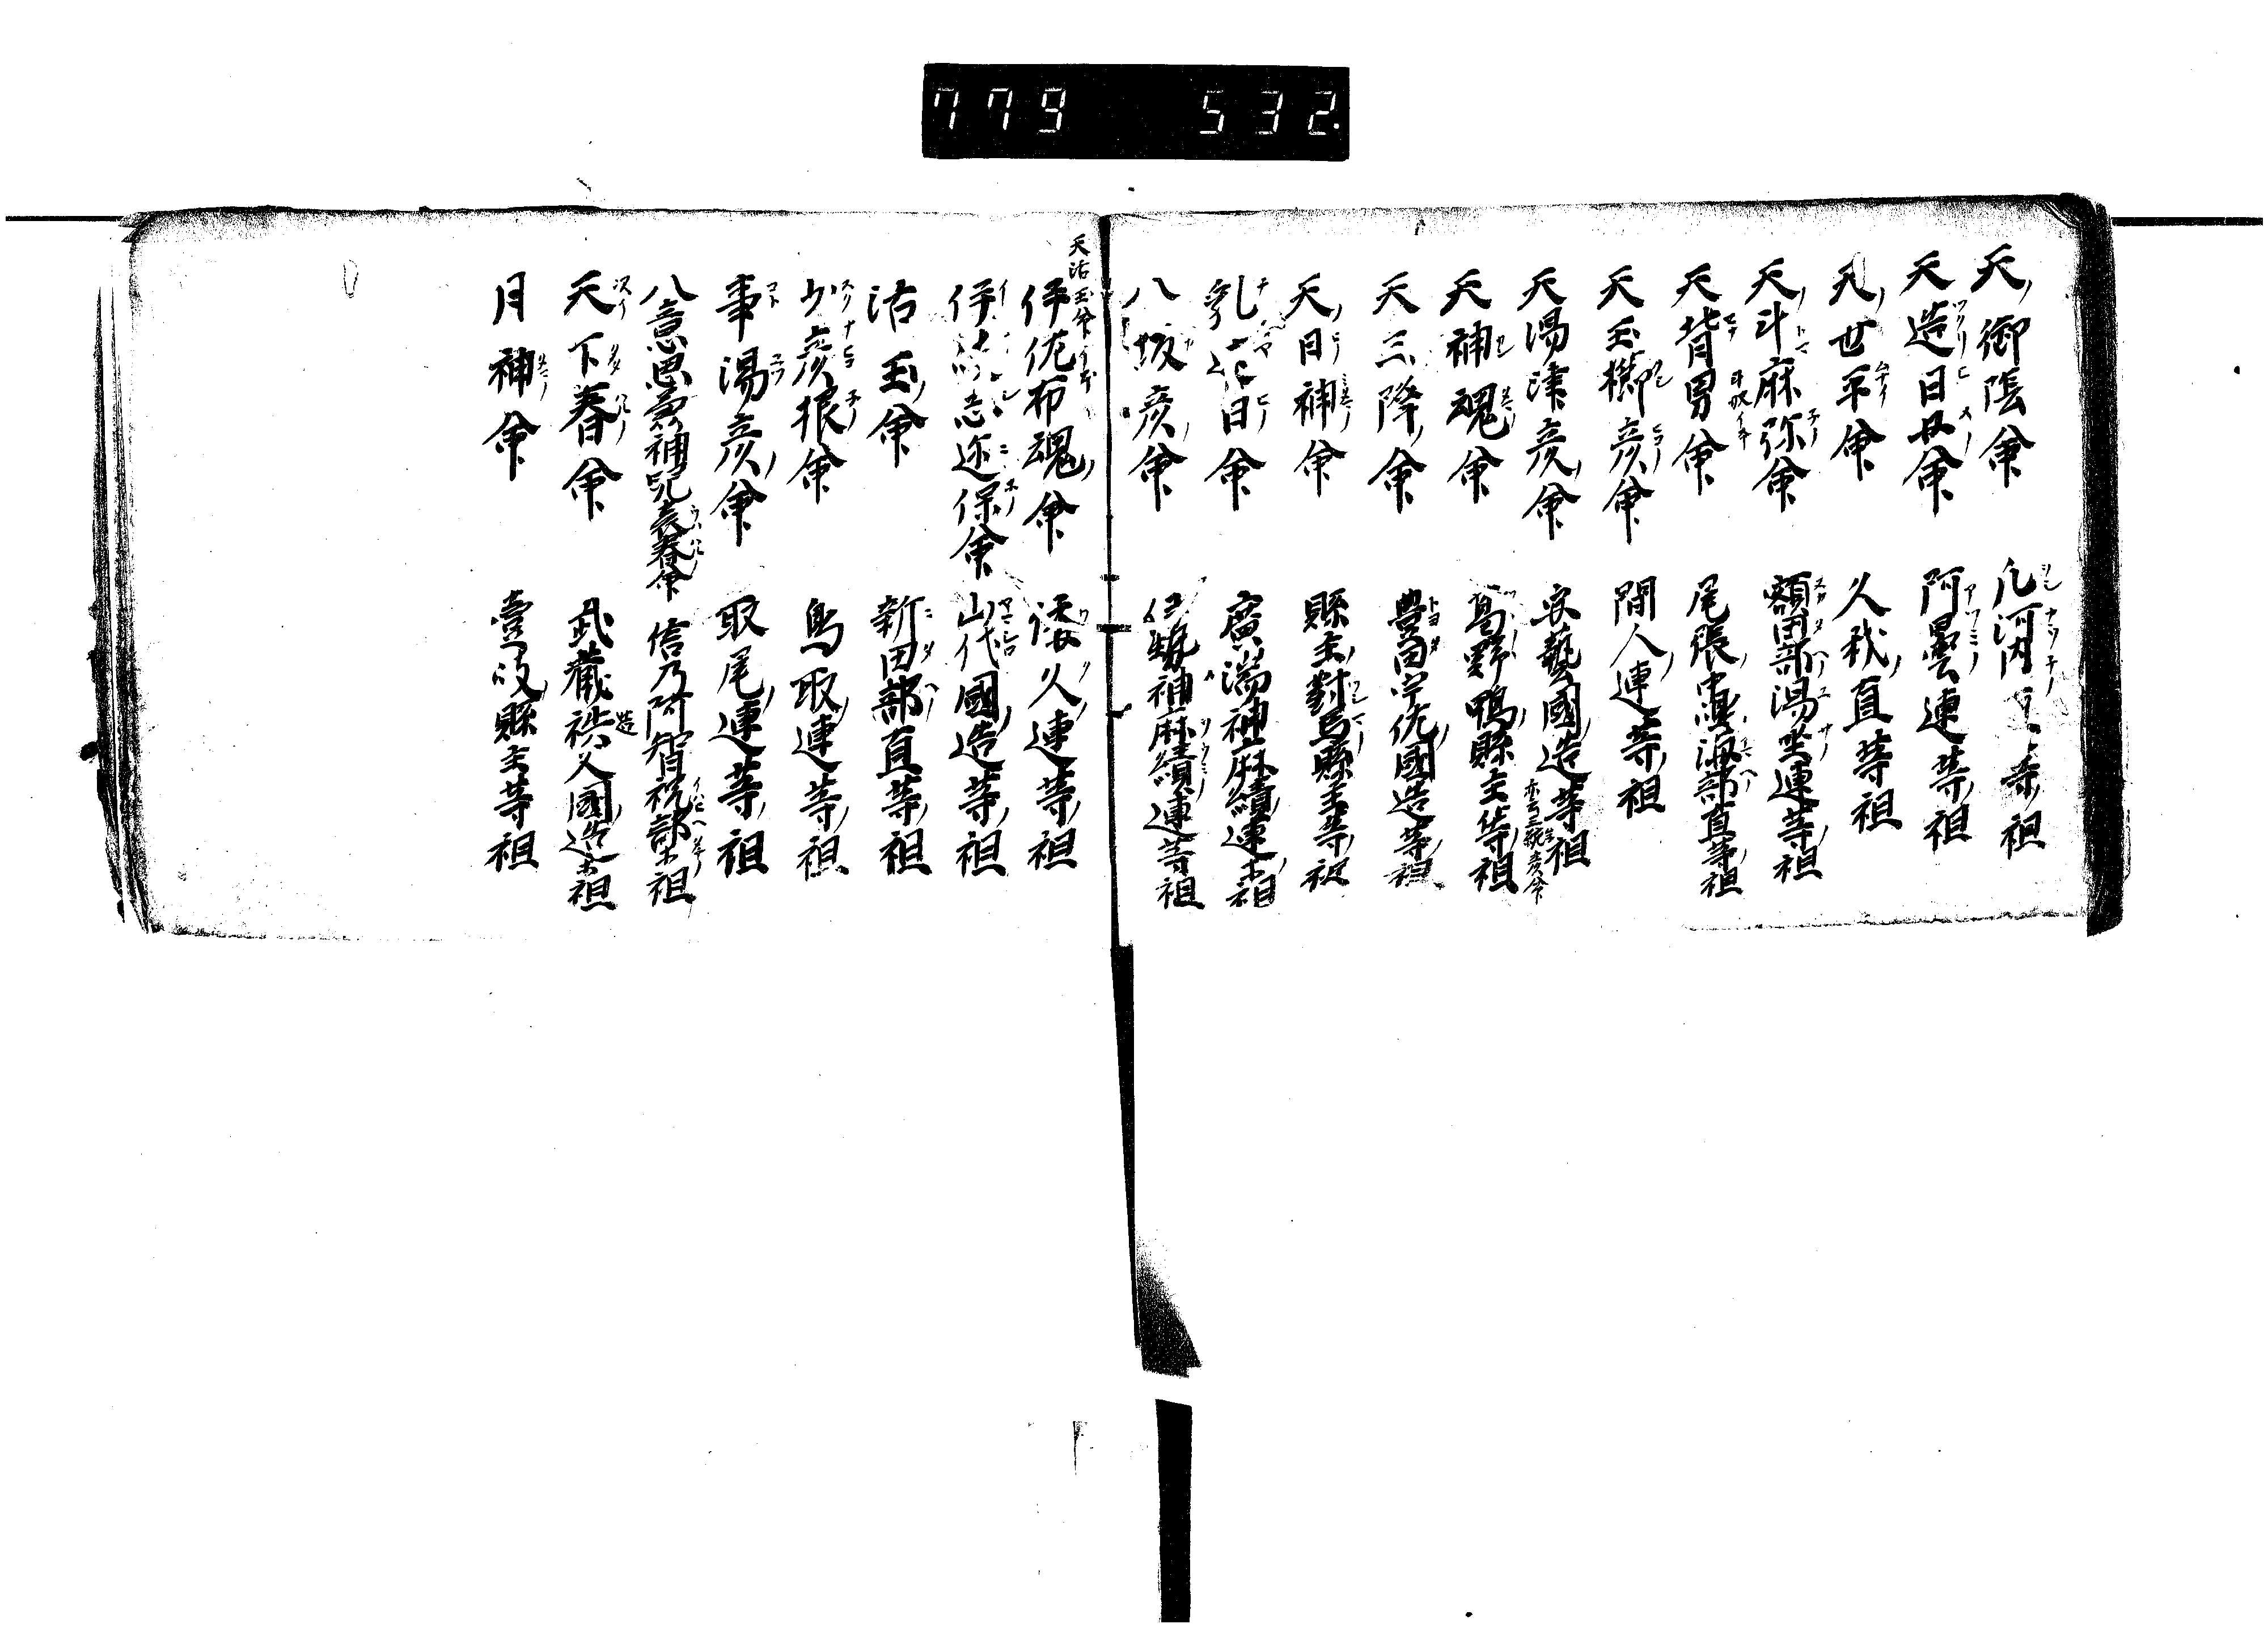 779 532.
天御陰命 凡河内直等祖
天造日女命 阿曇連等祖
天世平命 久我直等祖
天斗麻弥命 額田部湯坐連等祖
天背男命 尾張中嶋海部直等祖
天玉櫛彦命 間人連等祖
天湯津彦命 安藝國造等祖
天神魂命 葛野鴨縣主等祖
天三降命 豊田宇佐國造等祖
天日神命 縣主對馬縣主等祖
乳速日命 廣湍神麻續連ホ祖
八坂彦命 伊勢神麻續連等祖
天活玉命
伊佐布魂命 倭久連等祖
伊岐志迩保命 山代國造等祖
活玉命 新田部直等祖
少彦根命 鳥取連等祖
事湯彦命 取尾連等祖
八意思兼神児表春命 信乃阿智祝部ホ祖
天下春命 武蔵秩父國造ホ祖
月神命 壹岐縣主等祖